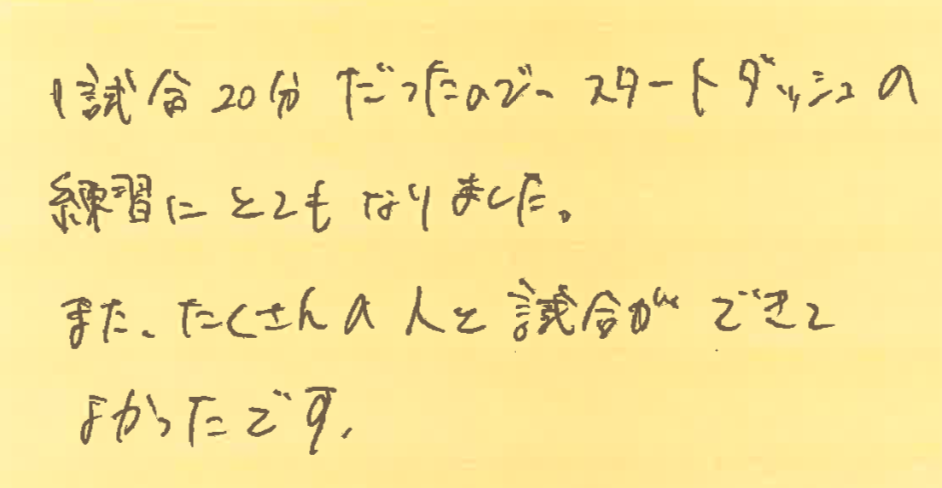 1試合20分だったので、スタートダッシュの
練習にとてもなりました。
また、たくさんの人と試合ができて
よかったです。